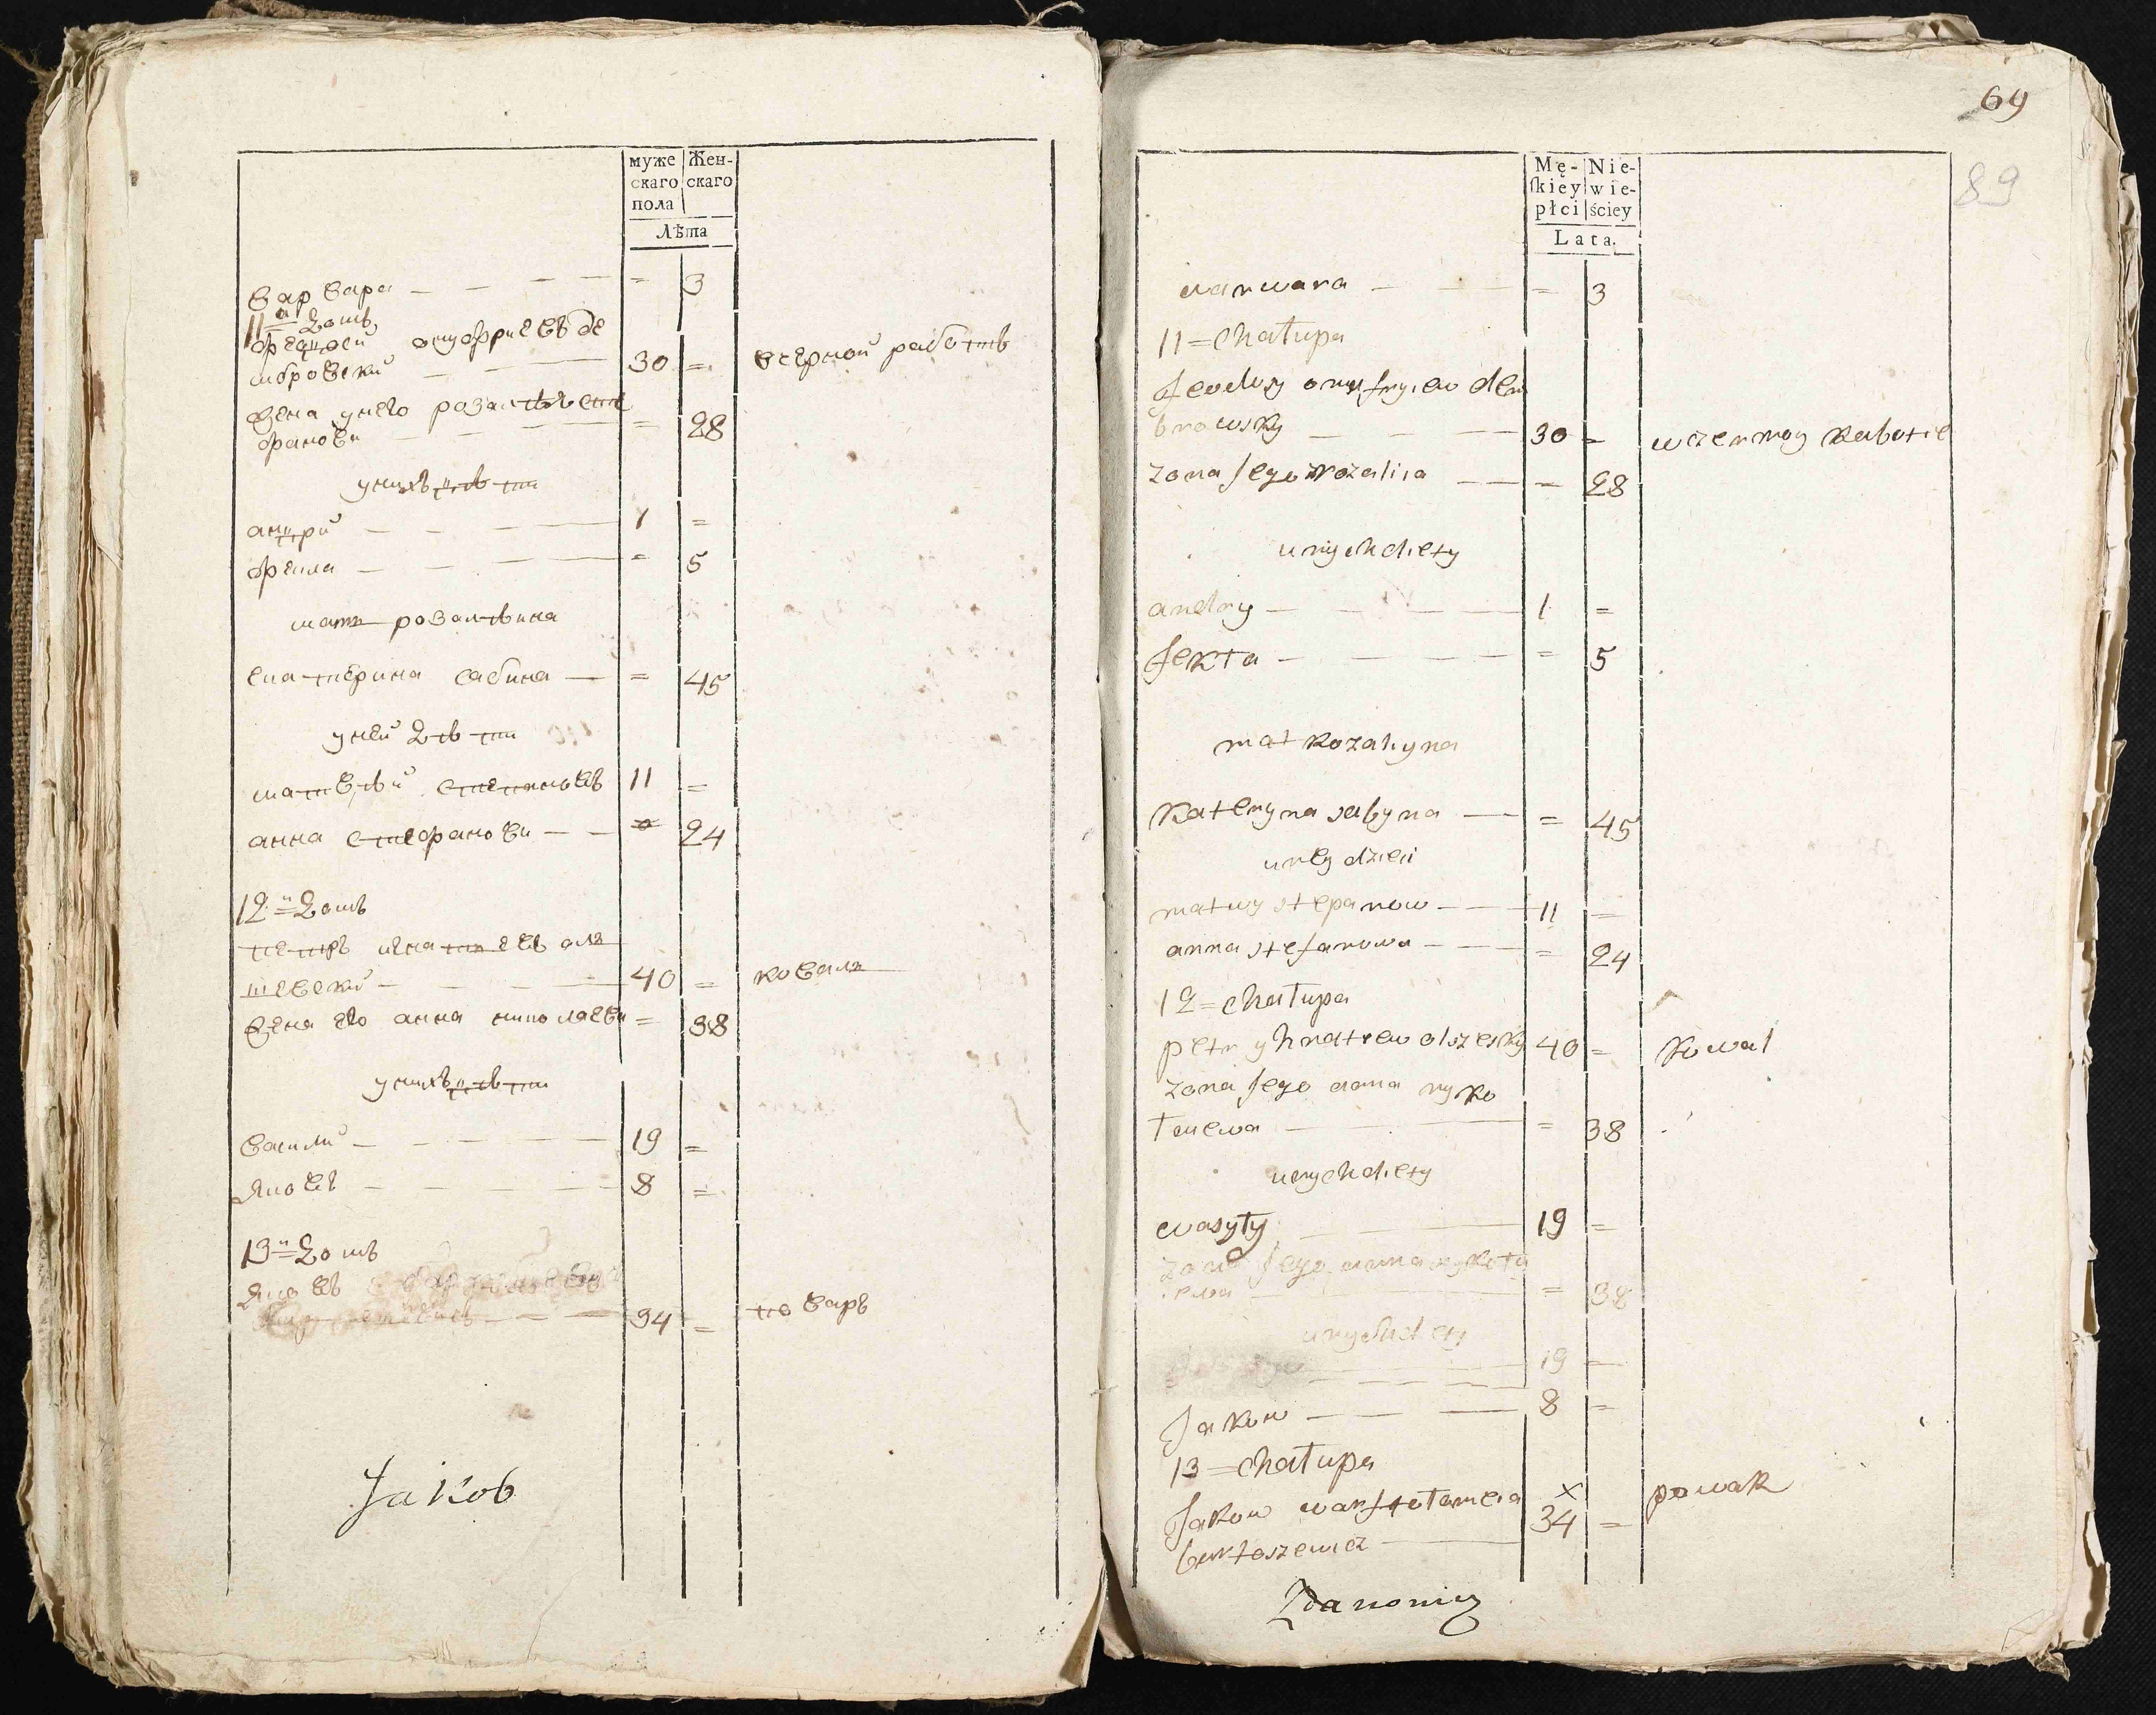 муже
скаго
пола
Жен-
скаго
Лѣта
варвара — — — = 3
11й домъ
федосей онуфриевъ де
мбровски — — 30 = вчерной работѣ
жена унего розалия сте
фанова — — = 28
унихъ дѣти
андри — — — 1 =
фекла — — — = 5
мать розалѣина
екатерина сабина — = 45
уней дѣти
матвѣй степановъ 11 =
анна стефанова — — = 24
12й домъ
петръ игнатиевъ ол
шевски — — — 40 = коваль
жена его анна николаева = 38
унихъ дѣти
васили — — — 19 =
яковъ — — — 8 =
13й домъ
яковъ
— — 34 = поваръ
Jakob
69
89
Mę-
skiey
płci
Nie-
wie-
ściey
Lata.
warwara — — — = 3
11 = chałupa
fedosy onufryiew dem
browsky — — — 30 = wczernoy rabotie
zona jego rozalia — — = 28
unych diety
andry — — — 1 =
fekła — — — = 5
mat rozalyna
kateryna sabyna — = 45
uney dzieci
matwy stepanow — — 11 =
anna stefanowa — — = 24
12 = chałupa
petr yhnatiew olszesky 40 = kowal
zona jego anna nyko
łaiewa — — = 38
unych diety
wasyły — — 19 =
zona jego anna nykoła
iewa — — = 38
unych diety
— — 19 =
Jakow — — — 8 =
13 = chałupa
x
Jakow warfołomeia 34 = powar
bartoszewicz —
Zdanowicz